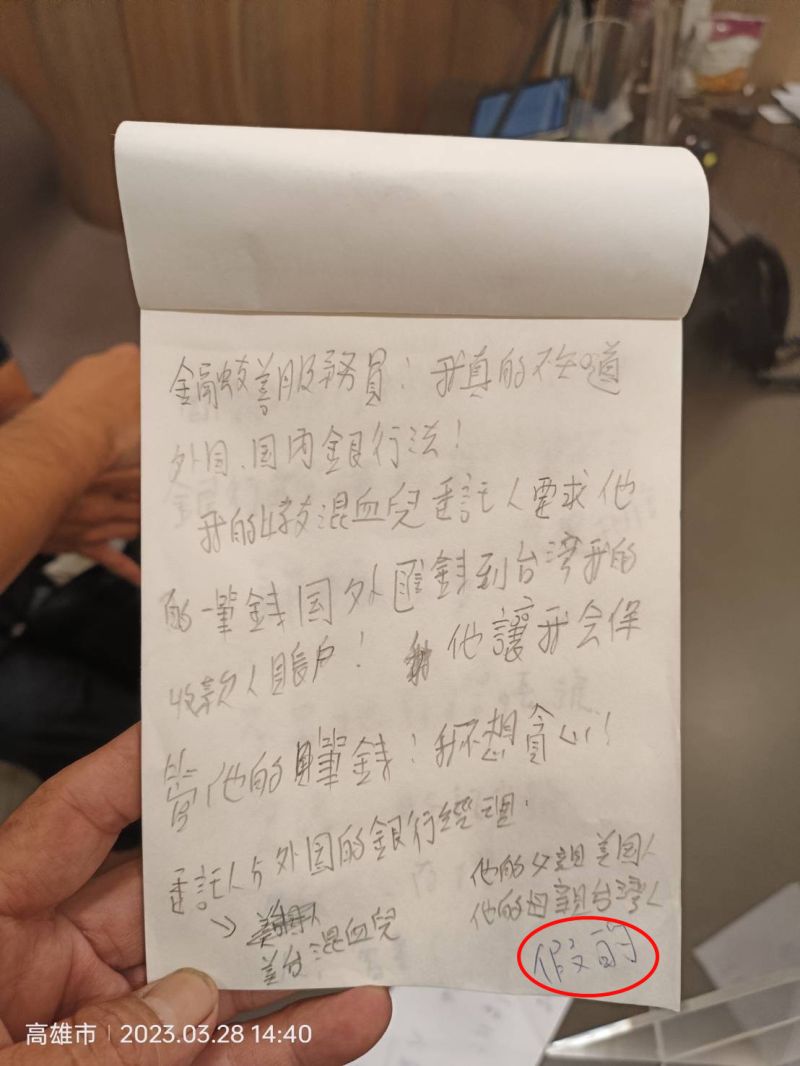 金融友善服務員：我真的不知道
外国、国内銀行法！
我的好友混血兒委託人要求他
的一筆錢国外匯錢到台湾我的
收款人賬戶！他讓我会保
管他的筆錢！我不想貪心！
委託人与外国的銀行經理.
美台混血兒
他的父親美国人
他的母親台湾人
假的
高雄市 | 2023.03.28 14:40